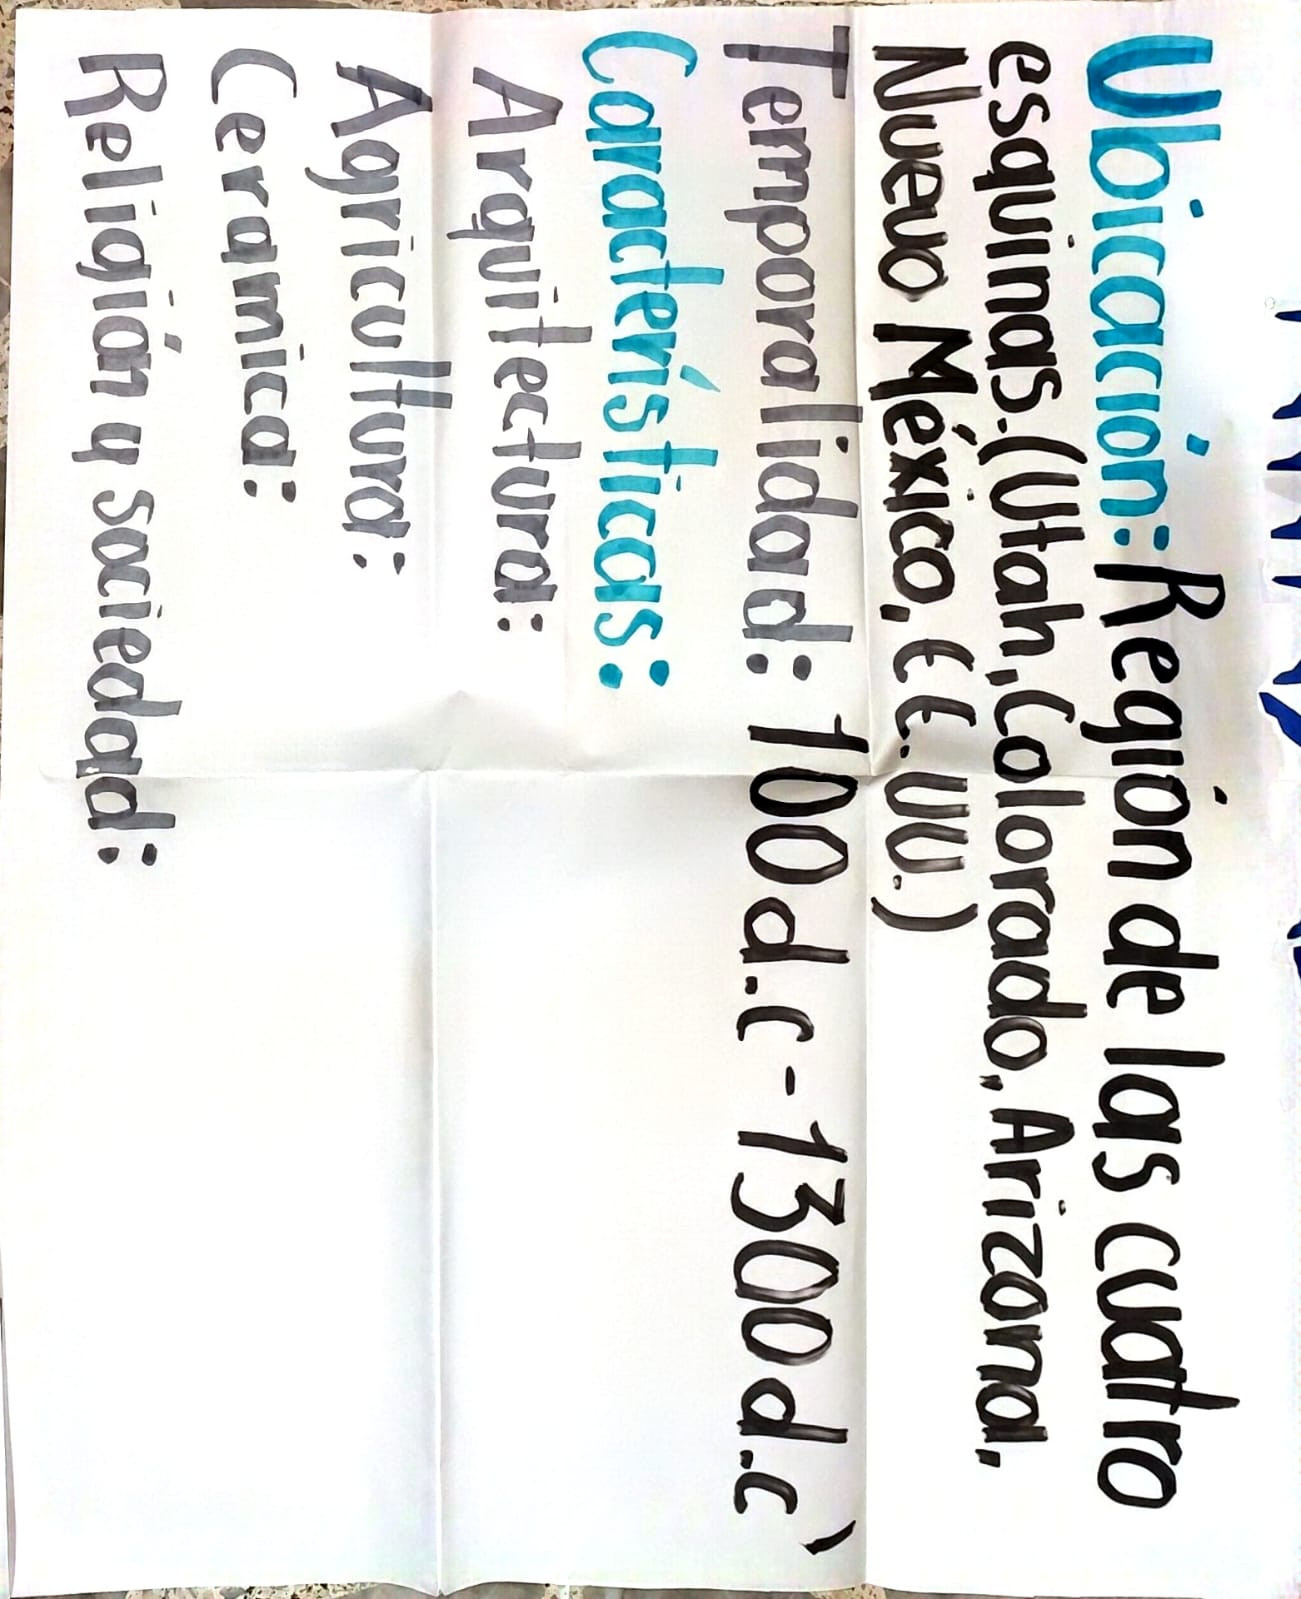 Ubicación: Región de las cuatro
esquinas. (Utah, Colorado, Arizona,
Nuevo México, EE.UU.)
Temporalidad: 100 d.c - 1300 d.c
Características:
Arquitectura:
Agricultura:
Ceramica:
Religión y Sociedad: